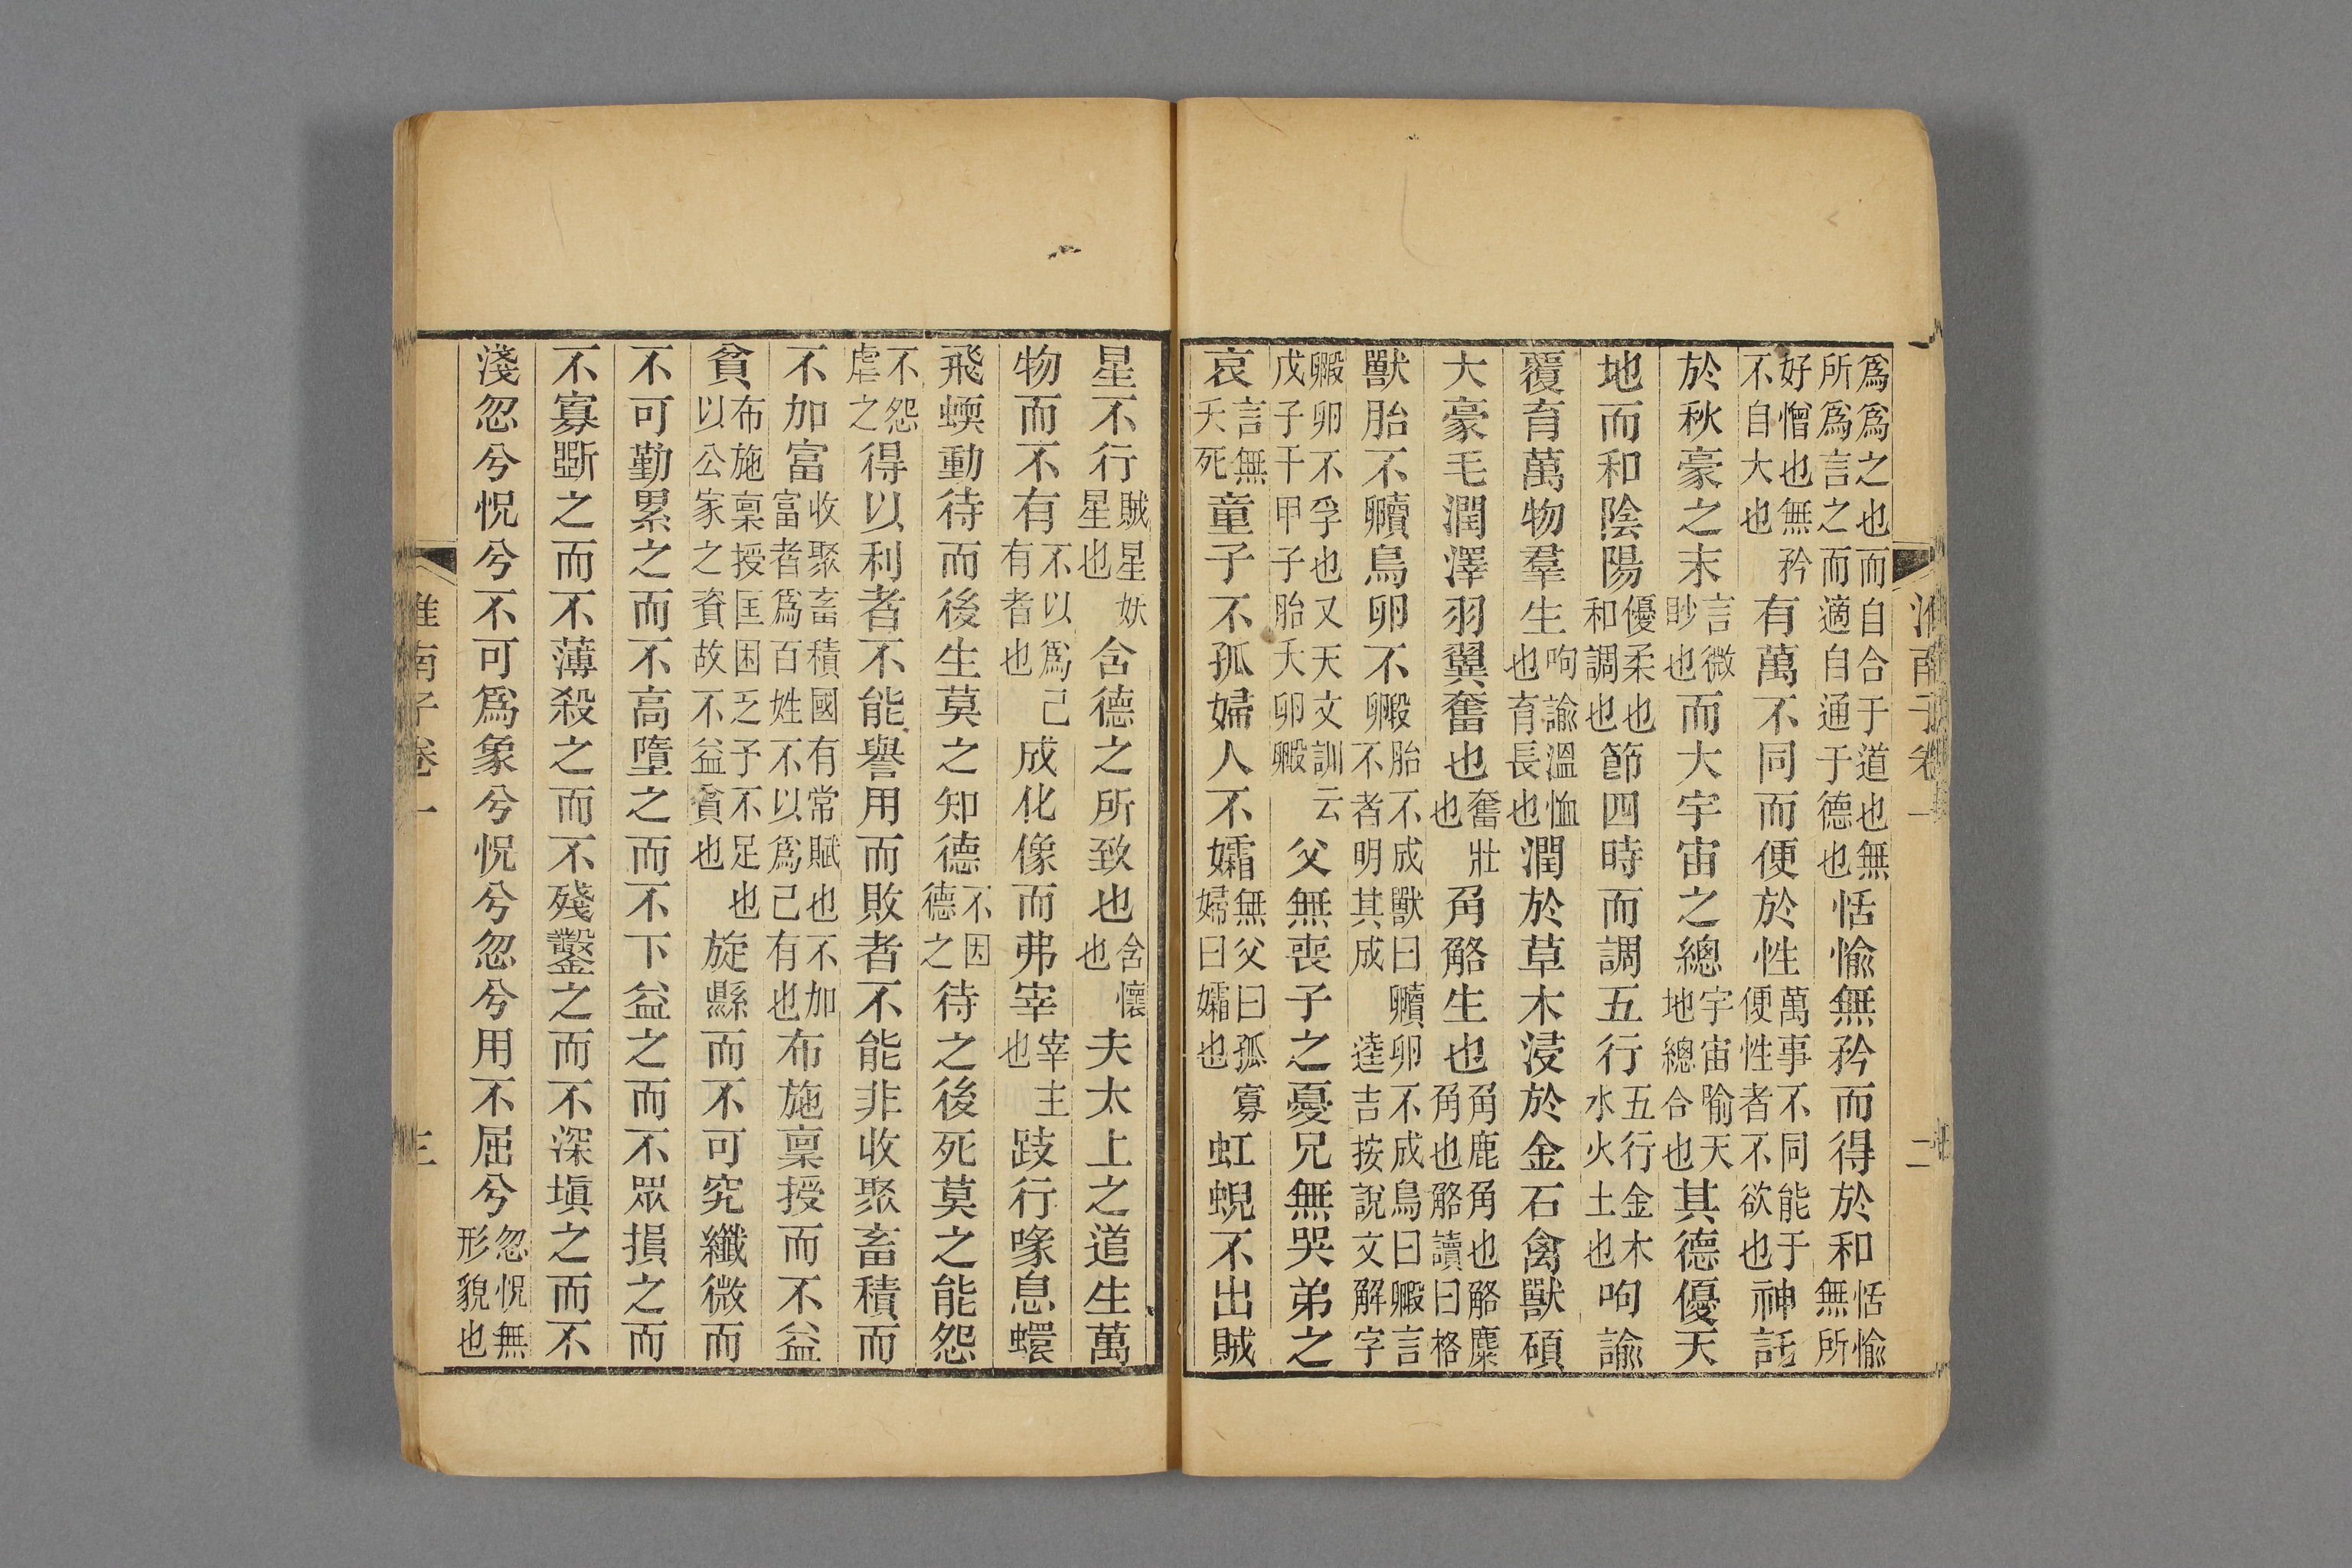 淮南子卷一 二
爲爲之也而自合于道也無所爲言之而適自通于德也恬愉無矜而得於和恬愉無所
好憎也無矜不自大也有萬不同而便於性萬事不同能于便性者不欲也神託
於秋豪之末言微眇也而大宇宙之總宇宙喻天地總合也其德優天
地而和陰陽優柔也和調也節四時而調五行五行金木水火土也呴諭
覆育萬物羣生呴諭溫恤也育長也潤於草木浸於金石禽獸碩
大豪毛潤澤羽翼奮也奮壯也角觡生也角鹿角也觡麋角也觡讀曰格
獸胎不贕鳥卵不毈胎不成獸曰贕卵不成鳥曰毈言不者明其成 逵吉按說文解字
毈卵不孚也又天文訓云戊子干甲子胎夭卵毈父無喪子之憂兄無哭弟之
哀言無夭死童子不孤婦人不孀無父曰孤寡婦曰孀也虹蜺不出賊
星不行賊星妖星也含德之所致也含懷也夫太上之道生萬
物而不有不以爲己有者也成化像而弗宰宰主也跂行喙息蠉
飛蝡動待而後生莫之知德不因德之待之後死莫之能怨
不怨虐之得以利者不能譽用而敗者不能非收聚畜積而
不加富收聚畜積國有常賦也不加富者爲百姓不以爲己有也布施稟授而不益
貧布施稟授匡困乏予不足也以公家之資故不益貧也旋縣而不可究纖微而
不可勤累之而不高墮之而不下益之而不眾損之而
不寡斲之而不薄殺之而不殘鑿之而不深塡之而不
淺忽兮怳兮不可爲象兮怳兮忽兮用不屈兮忽怳無形貌也
淮南子卷一 三